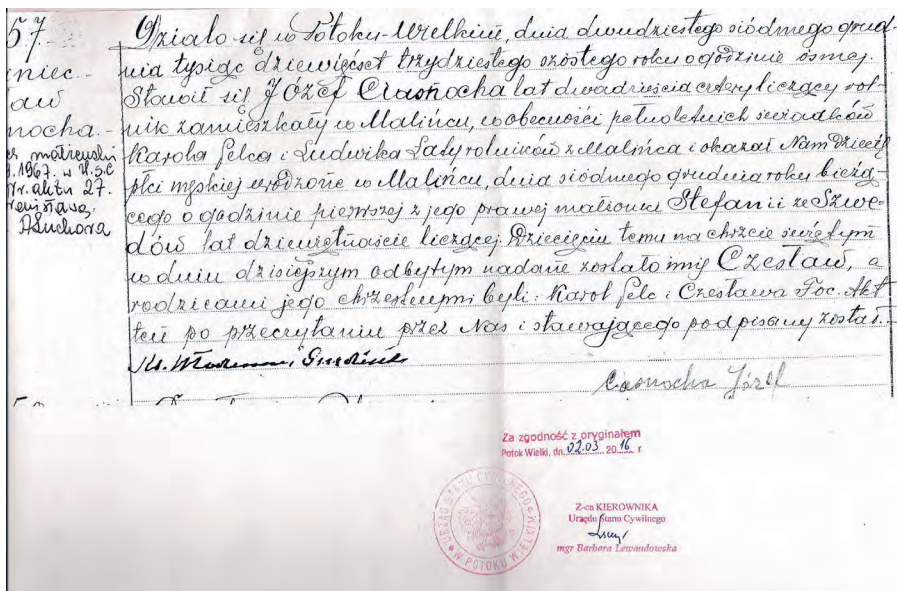 57.
Działo się w Potoku-Wielkim, dnia dwudziestego siódmego grud-
nia tysiąc dziewięćset trzydziestego szóstego roku o godzinie ósmej.
Stawił się Józef Ciasnocha lat dwadzieścia cztery liczący rol-
nik zamieszkały w Malińcu, w obecności pełnoletnich świadków
Karola Pelca i Ludwika Łaty rolników z Malińca i okazał Nam Dziecię
płci męskiej urodzone w Malińcu, dnia siódmego grudnia roku bieżą-
cego o godzinie pierwszej z jego prawej małżonki Stefanii ze Szwe-
dów lat dziewiętnaście liczącej. Dziecięciu temu na chrzcie świętym
w dniu dzisiejszym odbytym nadane zostało imię Czesław, a
rodzicami jego chrzestnymi byli: Karol Pelc i Czesława Foc. Akt
ten po przeczytaniu przez Nas i stawającego podpisany został.
iniec.-
ław
nocha.-
małżeński
1967. w U.S.C
Nr. aktu 27.
ASuchora
Ks.
Casnocha Józef
Za zgodność z oryginałem
Potok Wielki, dn. 02.03 2016 r
URZĄD STANU CYWILNEGO
W POTOKU WIELKIM
Z-ca KIEROWNIKA
Urzędu Stanu Cywilnego
mgr Barbara Lewandowska